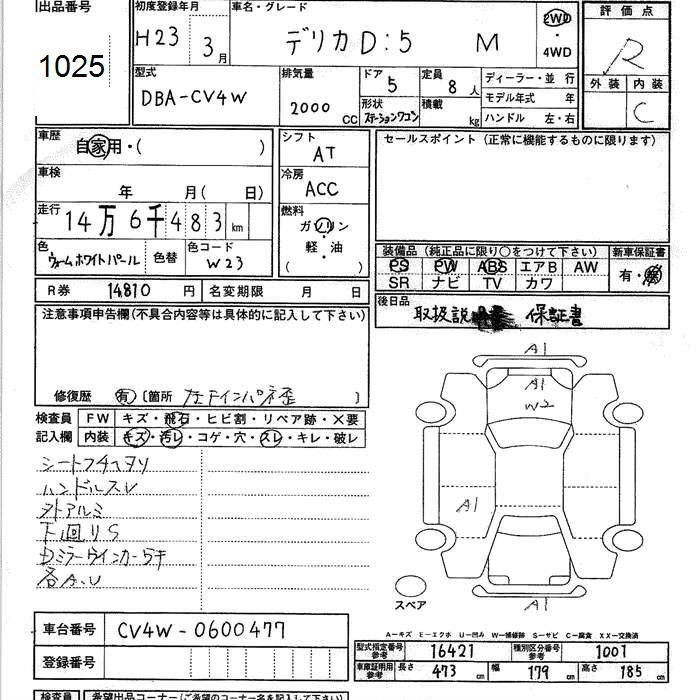 出品番号
1025
初度登録年月
H23 3月
車名・グレード
デリカD:5 M
2WD
・
4WD
評価点
R
外装 内装
C
型式
DBA-CV4W
排気量
2000 CC
ドア
5
定員
8人
形状
ステーションワゴン
積載
kg
ディーラー・並行
モデル年式 年
ハンドル 左・右
車歴
自家用・( )
車検
年 月( 日)
走行
14万6千483km
色
ウォームホワイトパール
色替
色コード
W23
シフト
AT
冷房
ACC
燃料
ガソリン
・
軽・油
( )
セールスポイント(正常に機能するものに限ります)
装備品(純正品に限り○をつけて下さい)
新車保証書
PS PW ABS エアB AW
SR ナビ TV カワ
有・
R券 14,810円
名変期限 月 日
後日品
取扱説 保証書
注意事項申告欄(不具合内容等は具体的に記入して下さい)
修復歴 有 〔箇所 左Fインパネ歪 〕
検査員
記入欄
FW キズ・飛石・ヒビ割・リペア跡・X要
内装 キズ・汚レ・コゲ・穴・スレ・キレ・破レ
シートフチヘタリ
ハンドルスレ
外アルミ
下回りS
Dミラーウインカーワレ
各A.U
A1
A1
W2
A1
A1
スペア
A-キズ E-エクボ U-凹み W-補修跡 S-サビ C-腐食 XX-交換済
車台番号 CV4W-0600477
登録番号
型式指定番号
参考
16421
類別区分番号
参考
1001
車庫証明用
参考
長さ 473 cm 幅 179 cm 高さ 185 cm
検査員 希望出品コーナー(ご希望のコーナー名を記入して下さい)